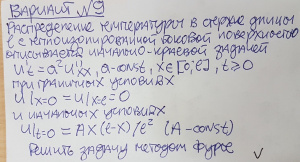 Вариант №9
Распределение температуры в стержне длины
l с теплоизолированной боковой поверхностью
описывается начально-краевой задачей
u't = a²u''xx, a-const, x∈[0;l], t≥0
при граничных условиях
u|x=0 = u|x=l = 0
и начальных условиях
u|t=0 = Ax(l-x)/l² (A-const)
Решить задачу методом Фурье